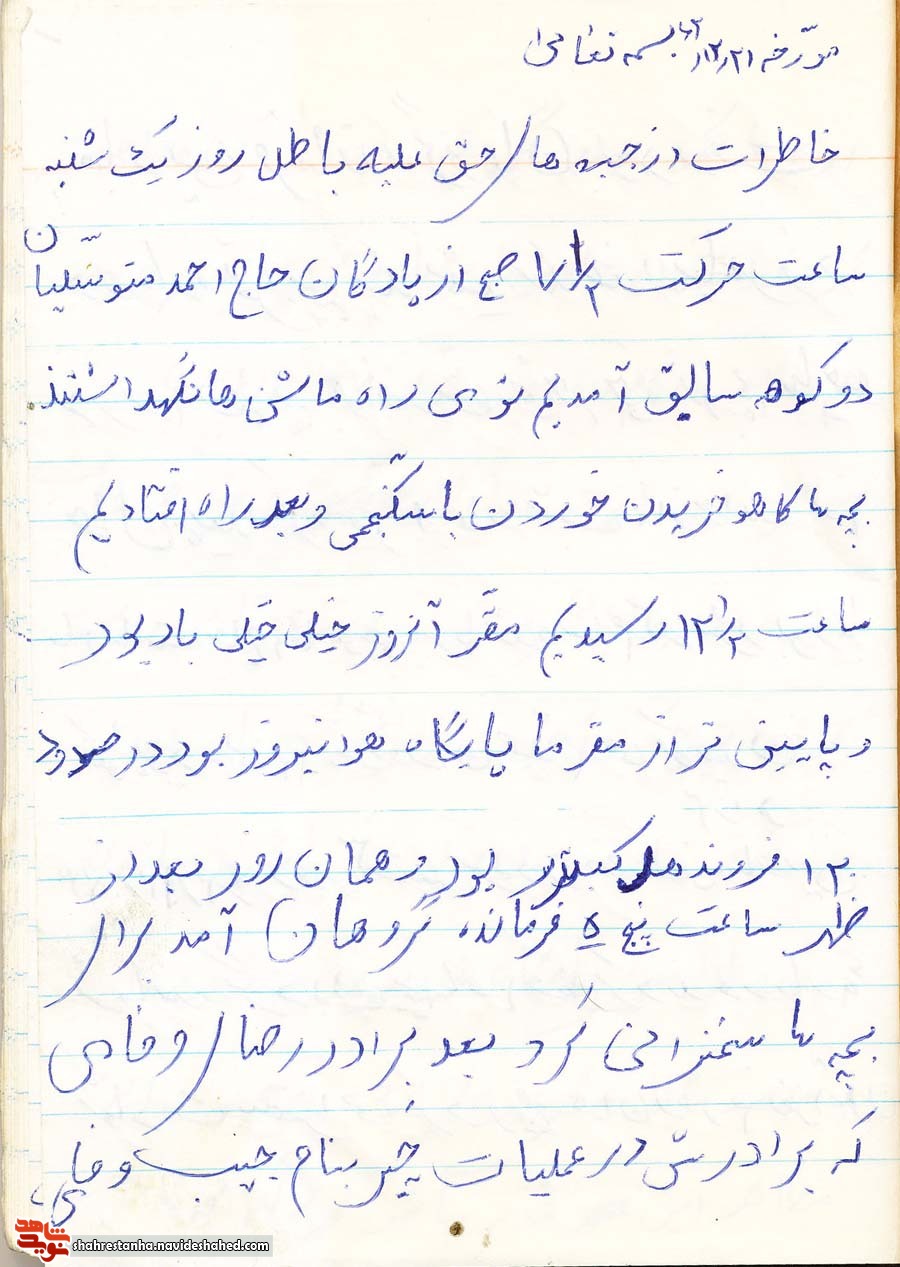 مورخه ۶۲/۱۲/۲۱ بسمه تعالی
خاطرات از جبهه های حق علیه باطل روز یکشنبه
ساعت حرکت ۷/۱/۲ صبح از پادگان حاج احمد متوسلیان
دوکوهه سابق آمدیم توی راه ماشین ها نگهداشتند
بچه ها کاهو خریدن خوردن با سکنجمی و بعد راه افتادیم
ساعت ۱۲/۱/۲ رسیدیم مقر آنروز خیلی خیلی باد بود
و پایین تر از مقر ما پایگاه هوانیروز بود در حدود
۱۲ فروند بود و همان روز بعد از
ظهر ساعت پنج ۵ فرمانده گروهان آمد برای
بچه ها سخنرانی کرد بعد برادر رضای وفایی
که برادرش در عملیات خیبر بنام وفایی
نوید شاهد
shahrestanha.navideshahed.com